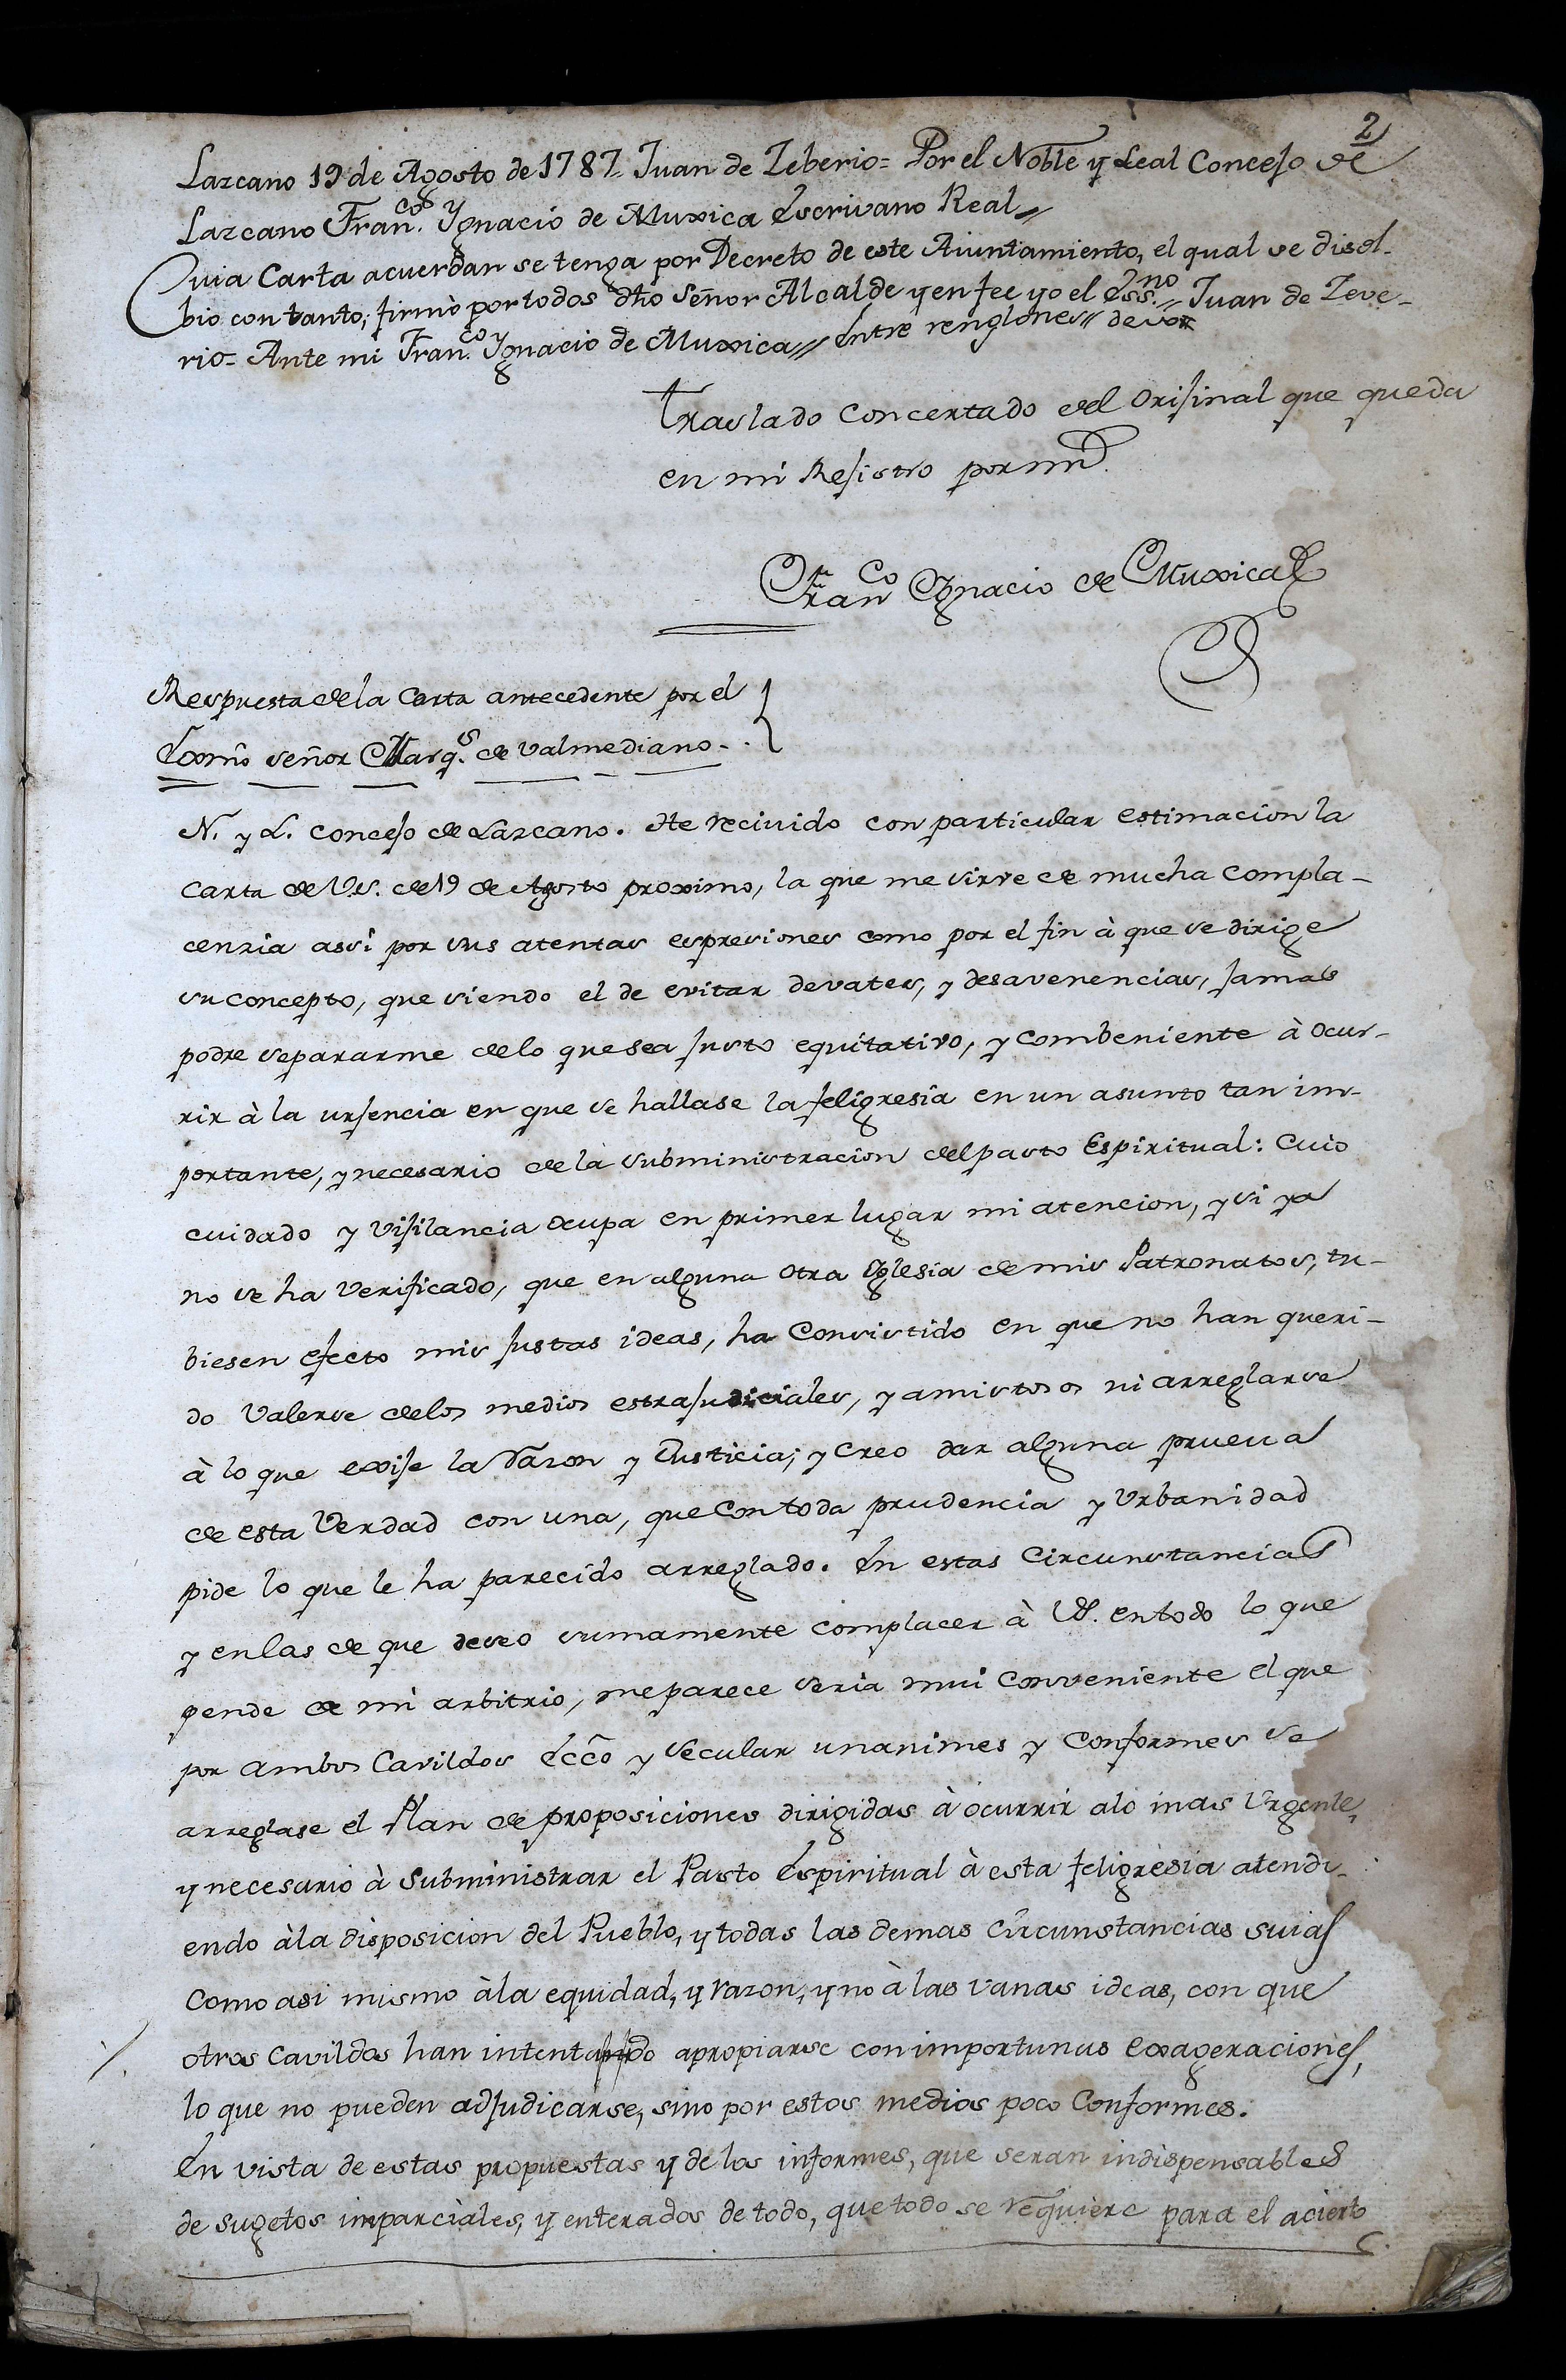 2
Lazcano 19 de Agosto de 1787. Juan de Zeberio= Por el Noble y Leal Concejo de
Lazcano Fran.co Ygnacio de Muxica Escrivano Real//
Cuia Carta acuerdan se tenga por Decreto de este Aiuntamiento, el qual se disol-
bio con tanto, firmò por todos dho Señor Alcalde y en fee yo el Ess.no// Juan de Zeve-
rio= Ante mi Fran.co Ygnacio de Muxica/// Entre renglones// de vox
Traslado Concertado del Orijinal que queda
en mi Rejistro por mi
Fran.co Ygnacio de Muxica
Respuesta de la Carta antecedente por el
Exmô señor Marq.s de Valmediano..
N. y L. Concejo de Lazcano. He recivido con particular estimacion la
Carta de V.S. de 19 de Agosto proximo, la que me sirve de mucha Compla-
cenzia assi por sus atentas espresiones como por el fin à que se dirige
su concepto, que siendo el de evitar devates, y desavenencias, jamas
podre separarme de lo que sea justo equitativo, y combeniente à ocur-
rir à la urjencia en que se hallase la feligresia en un asunto tan im-
portante, y necesario de la subministracion del pasto Espiritual: Cuio
cuidado y vijilancia ocupa en primer lugar mi atencion, y si ya
no se ha verificado, que en alguna otra Yglesia de mis Patronatos, tu-
biesen efecto mis justas ideas, ha Consistido en que no han queri-
do valerse de los medios estrajudiciales, y amistosos ni arreglarse
à lo que exije la Razon y Justicia; y creo dar alguna prueva
de esta Verdad con una, que con toda prudencia y Urbanidad
pide lo que le ha parecido arreglado. En estas Circunstancias
y en las de que deseo sumamente complacer à VS. en todo lo que
pende de mi arbitrio, me parece seria mui Conveniente el que
por ambos Cavildos Eccô y Secular unanimes y Conformes se
arreglase el Plan de proposiciones dirigidas à ocurrir alo mas Urgente,
y necesario à Subministrar el Pasto Espiritual à esta feligresia atendi-
endo àla disposicion del Pueblo, y todas las demas Circunstancias suias
Como asi mismo àla equidad, y razon, y no à las vanas ideas, con que
otros Cavildos han intentado apropiarse con importunas exageraciones,
lo que no pueden adjudicarse, sino por estos medios poco Conformes.
En vista de estas propuestas y de los informes, que seran indispensables
de sugetos imparciales, y enterados de todo, que todo se requiere para el acierto